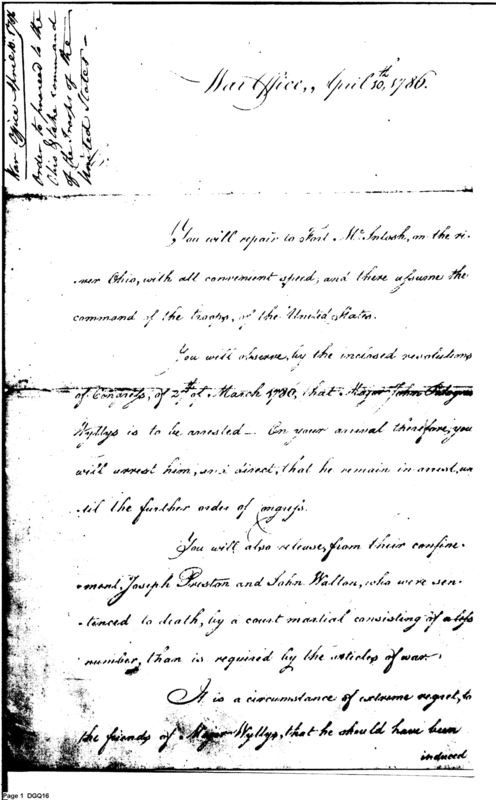 War Office April 10. 1786
Order to proceed to the
Ohio & take command
of the troops of the
United States –
War Office,, April 10,th 1786.
You will repair to Fort McIntosh, on the ri-
-ver Ohio, with all convenient speed; and there assume the
command of the troops, of the United States.
You will observe, by the inclosed resolutions
of Congress, of 2d of March 1786, that Major John
Wyllys is to be arrested – On your arrival therefore, you
will arrest him, and direct, that he remain in arrest, un
-til the further order of Congress.
You will also release, from their confine-
-ment, Joseph Preston and John Walton, who were sen-
-tenced to death, by a court martial consisting of a less
number, than is required by the articles of war.
It is a circumstance of extreme regret, to
the friends of Major Wyllys, that he should have been
induced
Page 1 DGQ16